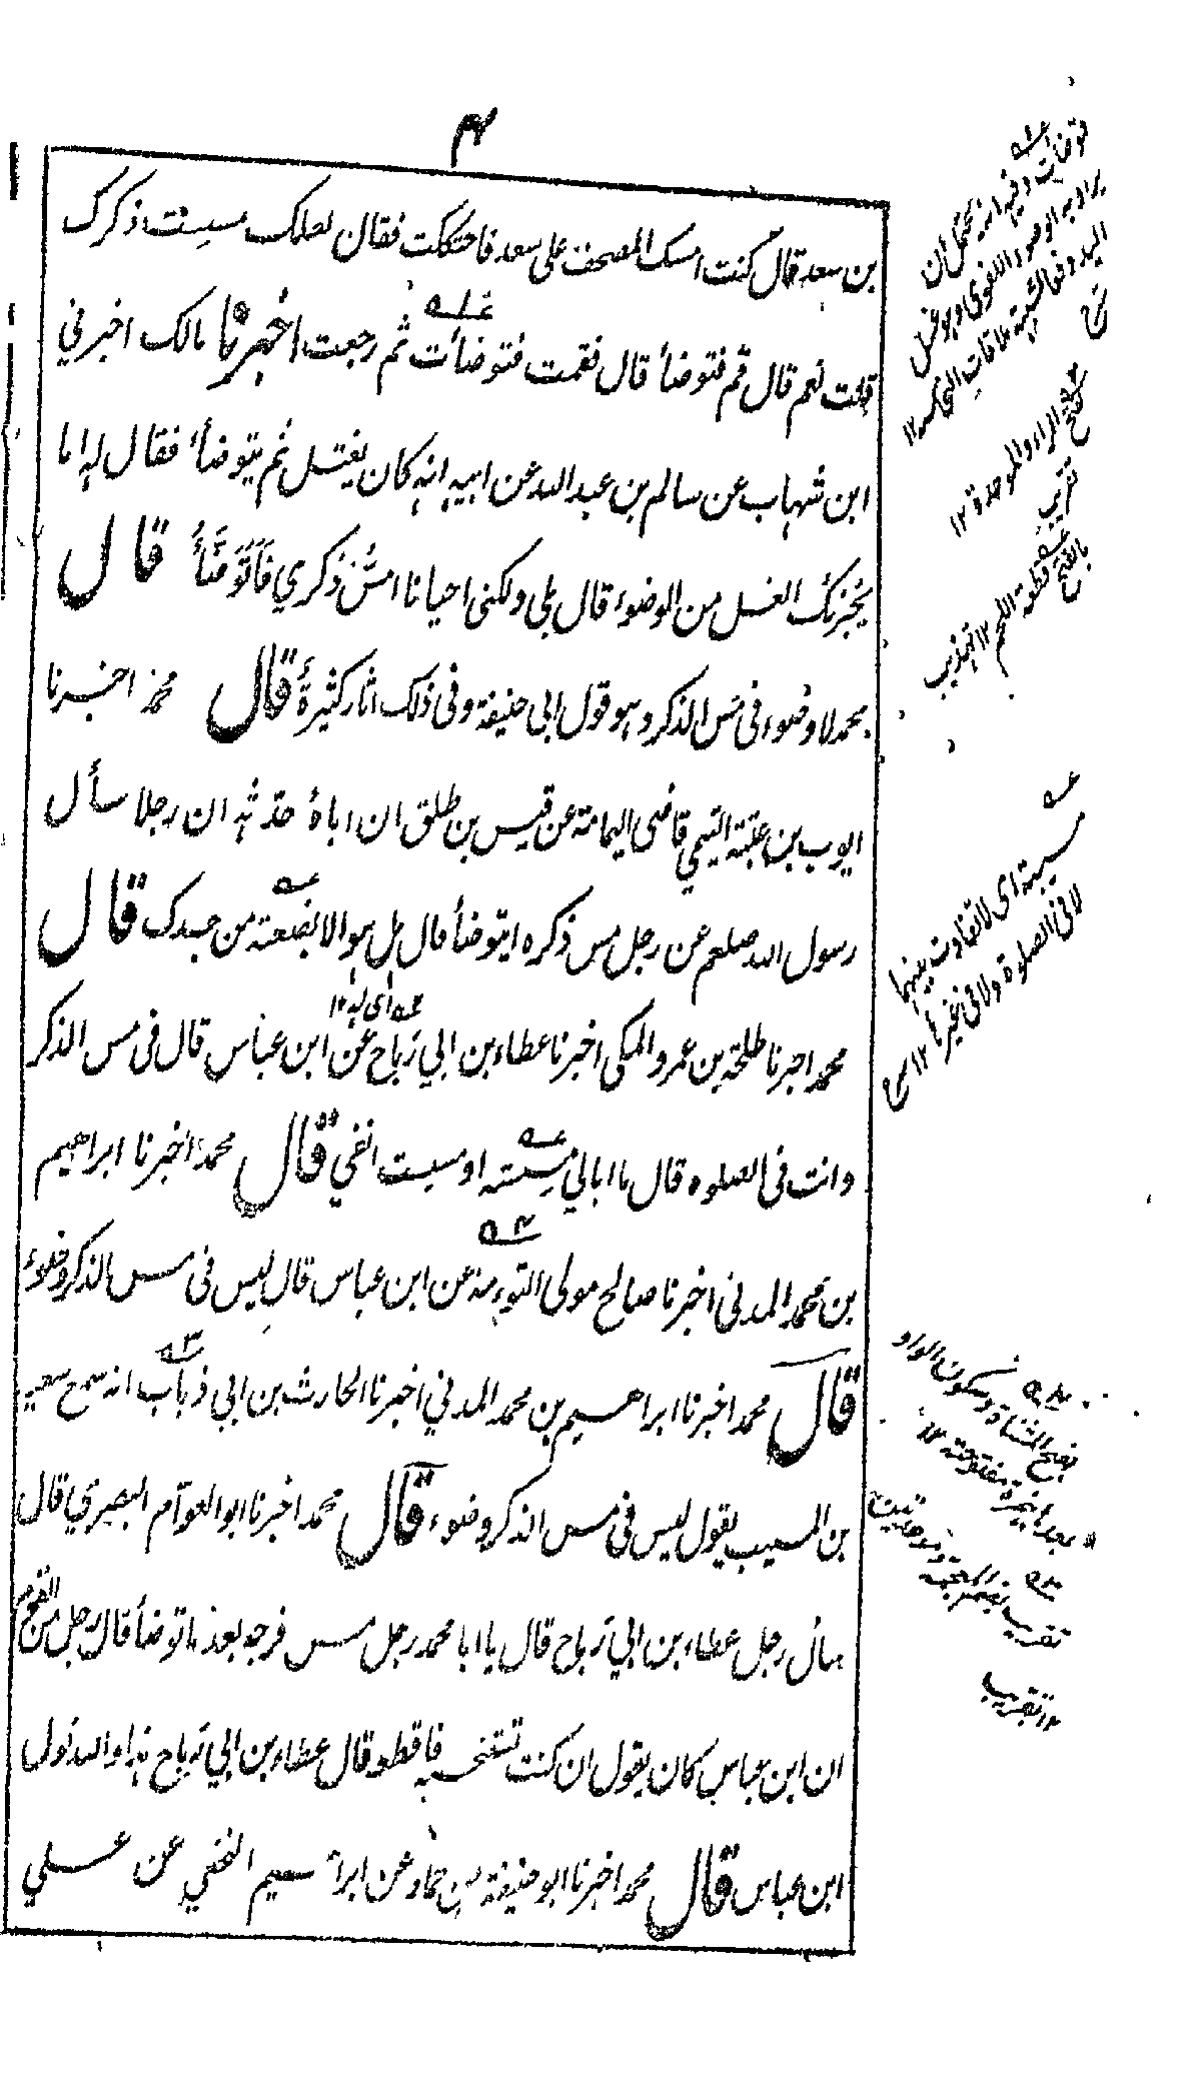 ۴
بن سعد قال كنت امسك المصحف على سعد فاحتككت فقال لعلك مسست ذكرك
قلت نعم قال قم فتوضأ قال فقمت فتوضأت ثم رجعت اخبرنا مالك اخبرني
ابن شهاب عن سالم بن عبد الله عن ابيه انه كان يغتسل ثم يتوضأ فقال له اما
يجزئك الغسل من الوضوء قال بلى ولكنى احيانا امسُّ ذكري فَاَتَوَضَّأُ قال
محمد لا وضوء فى مس الذكر وهو قول ابى حنيفة وفى ذلك اثار كثيرةٌ قال محمد اخبرنا
ايوب بن عتبة التيمي قاضى اليمامة عن قيس بن طلق ان اباهُ حدّثه ان رجلا سأل
رسول الله صلعم عن رجل مس ذكره ايتوضأ قال هل هو الا بضعة من جسدك قال
محمد اخبرنا طلحة بن عمرو المكى اخبرنا عطاء بن ابي رَباح عن ابن عباس قال فى مس الذكر
وانت فى الصلوة قال ما ابالي مسِسته او مسست انفي قال محمد اخبرنا ابراهيم
بن محمد المدنى اخبرنا صالح مولى التوءمة عن ابن عباس قال ليس فى مس الذكر وضوء
قال محمد اخبرنا ابراهيم بن محمد المدني اخبرنا الحارث بن ابي ذباب انه سمع سعيد
بن المسيب يقول ليس فى مس الذكر وضوء قال محمد اخبرنا ابو العوّام البصري قال
سأل رجل عطاء بن ابي رَباح قال يا ابا محمد رجل مس فرجه بعد ما توضأ قال رجل من القوم
ان ابن عباس كان يقول ان كنت تستنجسه فاقطعه قال عطاء بن ابي رَباح هذا والله قول
ابن عباس قال محمد اخبرنا ابو حنيفة عن حماد عن ابراهيم النخعي عن علي
توضأت وفيه انه يحتمل ان
يراد به الوضوء اللغوى وهو غسل
اليد دفعا لشبهة ملاقات النجاسة ١٢
بفتح الراء والموحدة ١٢
تقريب
بالفتح قطعة اللحم ١٢ تهذيب
اى له ١٢
مسسته اى لا تفاوت بينهما
لا فى الصلوة ولا فى غيرها ١٢
بفتح المثناة وسكون الواو
بعدها همزة مفتوحة ١٢
تقريب بضم المعجمة وموحدتين
١٢ تقريب